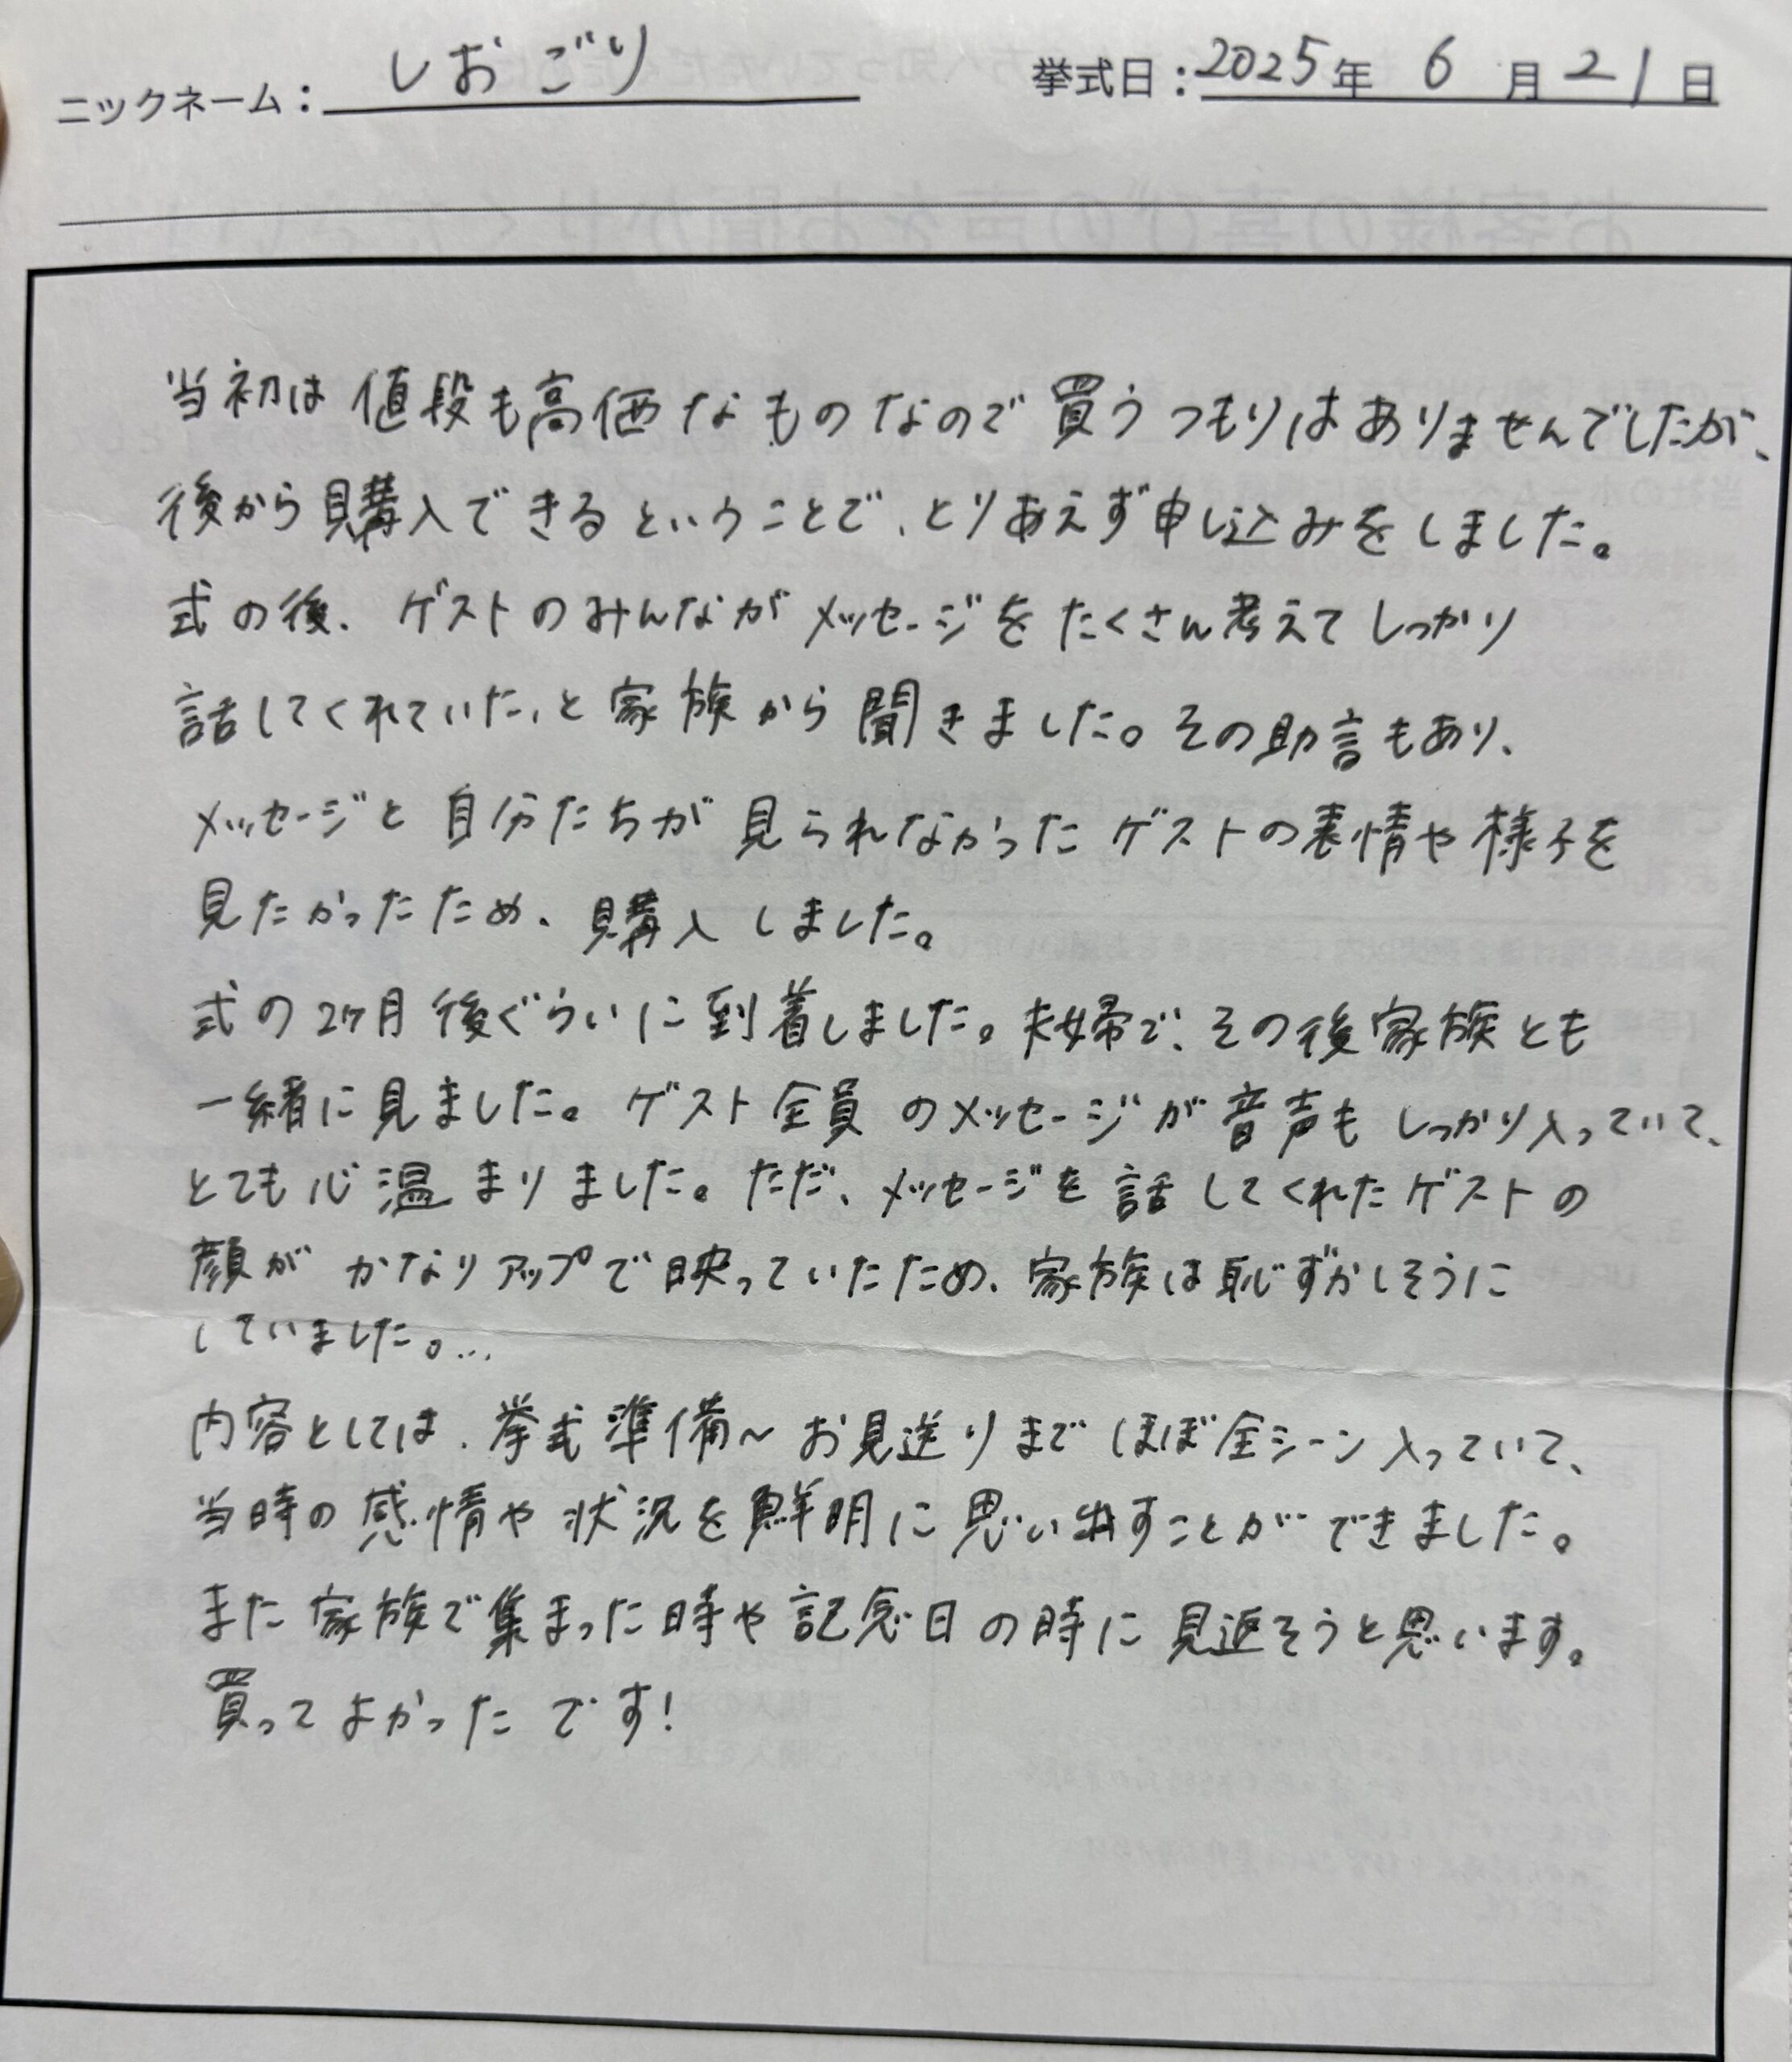 ニックネーム：しおごり 挙式日：2025年 6月21日
当初は値段も高価なものなので買うつもりはありませんでしたが、
後から購入できるということで、とりあえず申し込みをしました。
式の後、ゲストのみんながメッセージをたくさん考えてしっかり
話してくれていた、と家族から聞きました。その助言もあり、
メッセージと自分たちが見られなかったゲストの表情や様子を
見たかったため、購入しました。
式の2ヶ月後ぐらいに到着しました。夫婦で、その後家族とも
一緒に見ました。ゲスト全員のメッセージが音声もしっかり入っていて、
とても心温まりました。ただ、メッセージを話してくれたゲストの
顔がかなりアップで映っていたため、家族は恥ずかしそうに
していました。…
内容としては、挙式準備～お見送りまでほぼ全シーン入っていて、
当時の感情や状況を鮮明に思い出すことができました。
また家族で集まった時や記念日の時に見返そうと思います。
買ってよかったです！